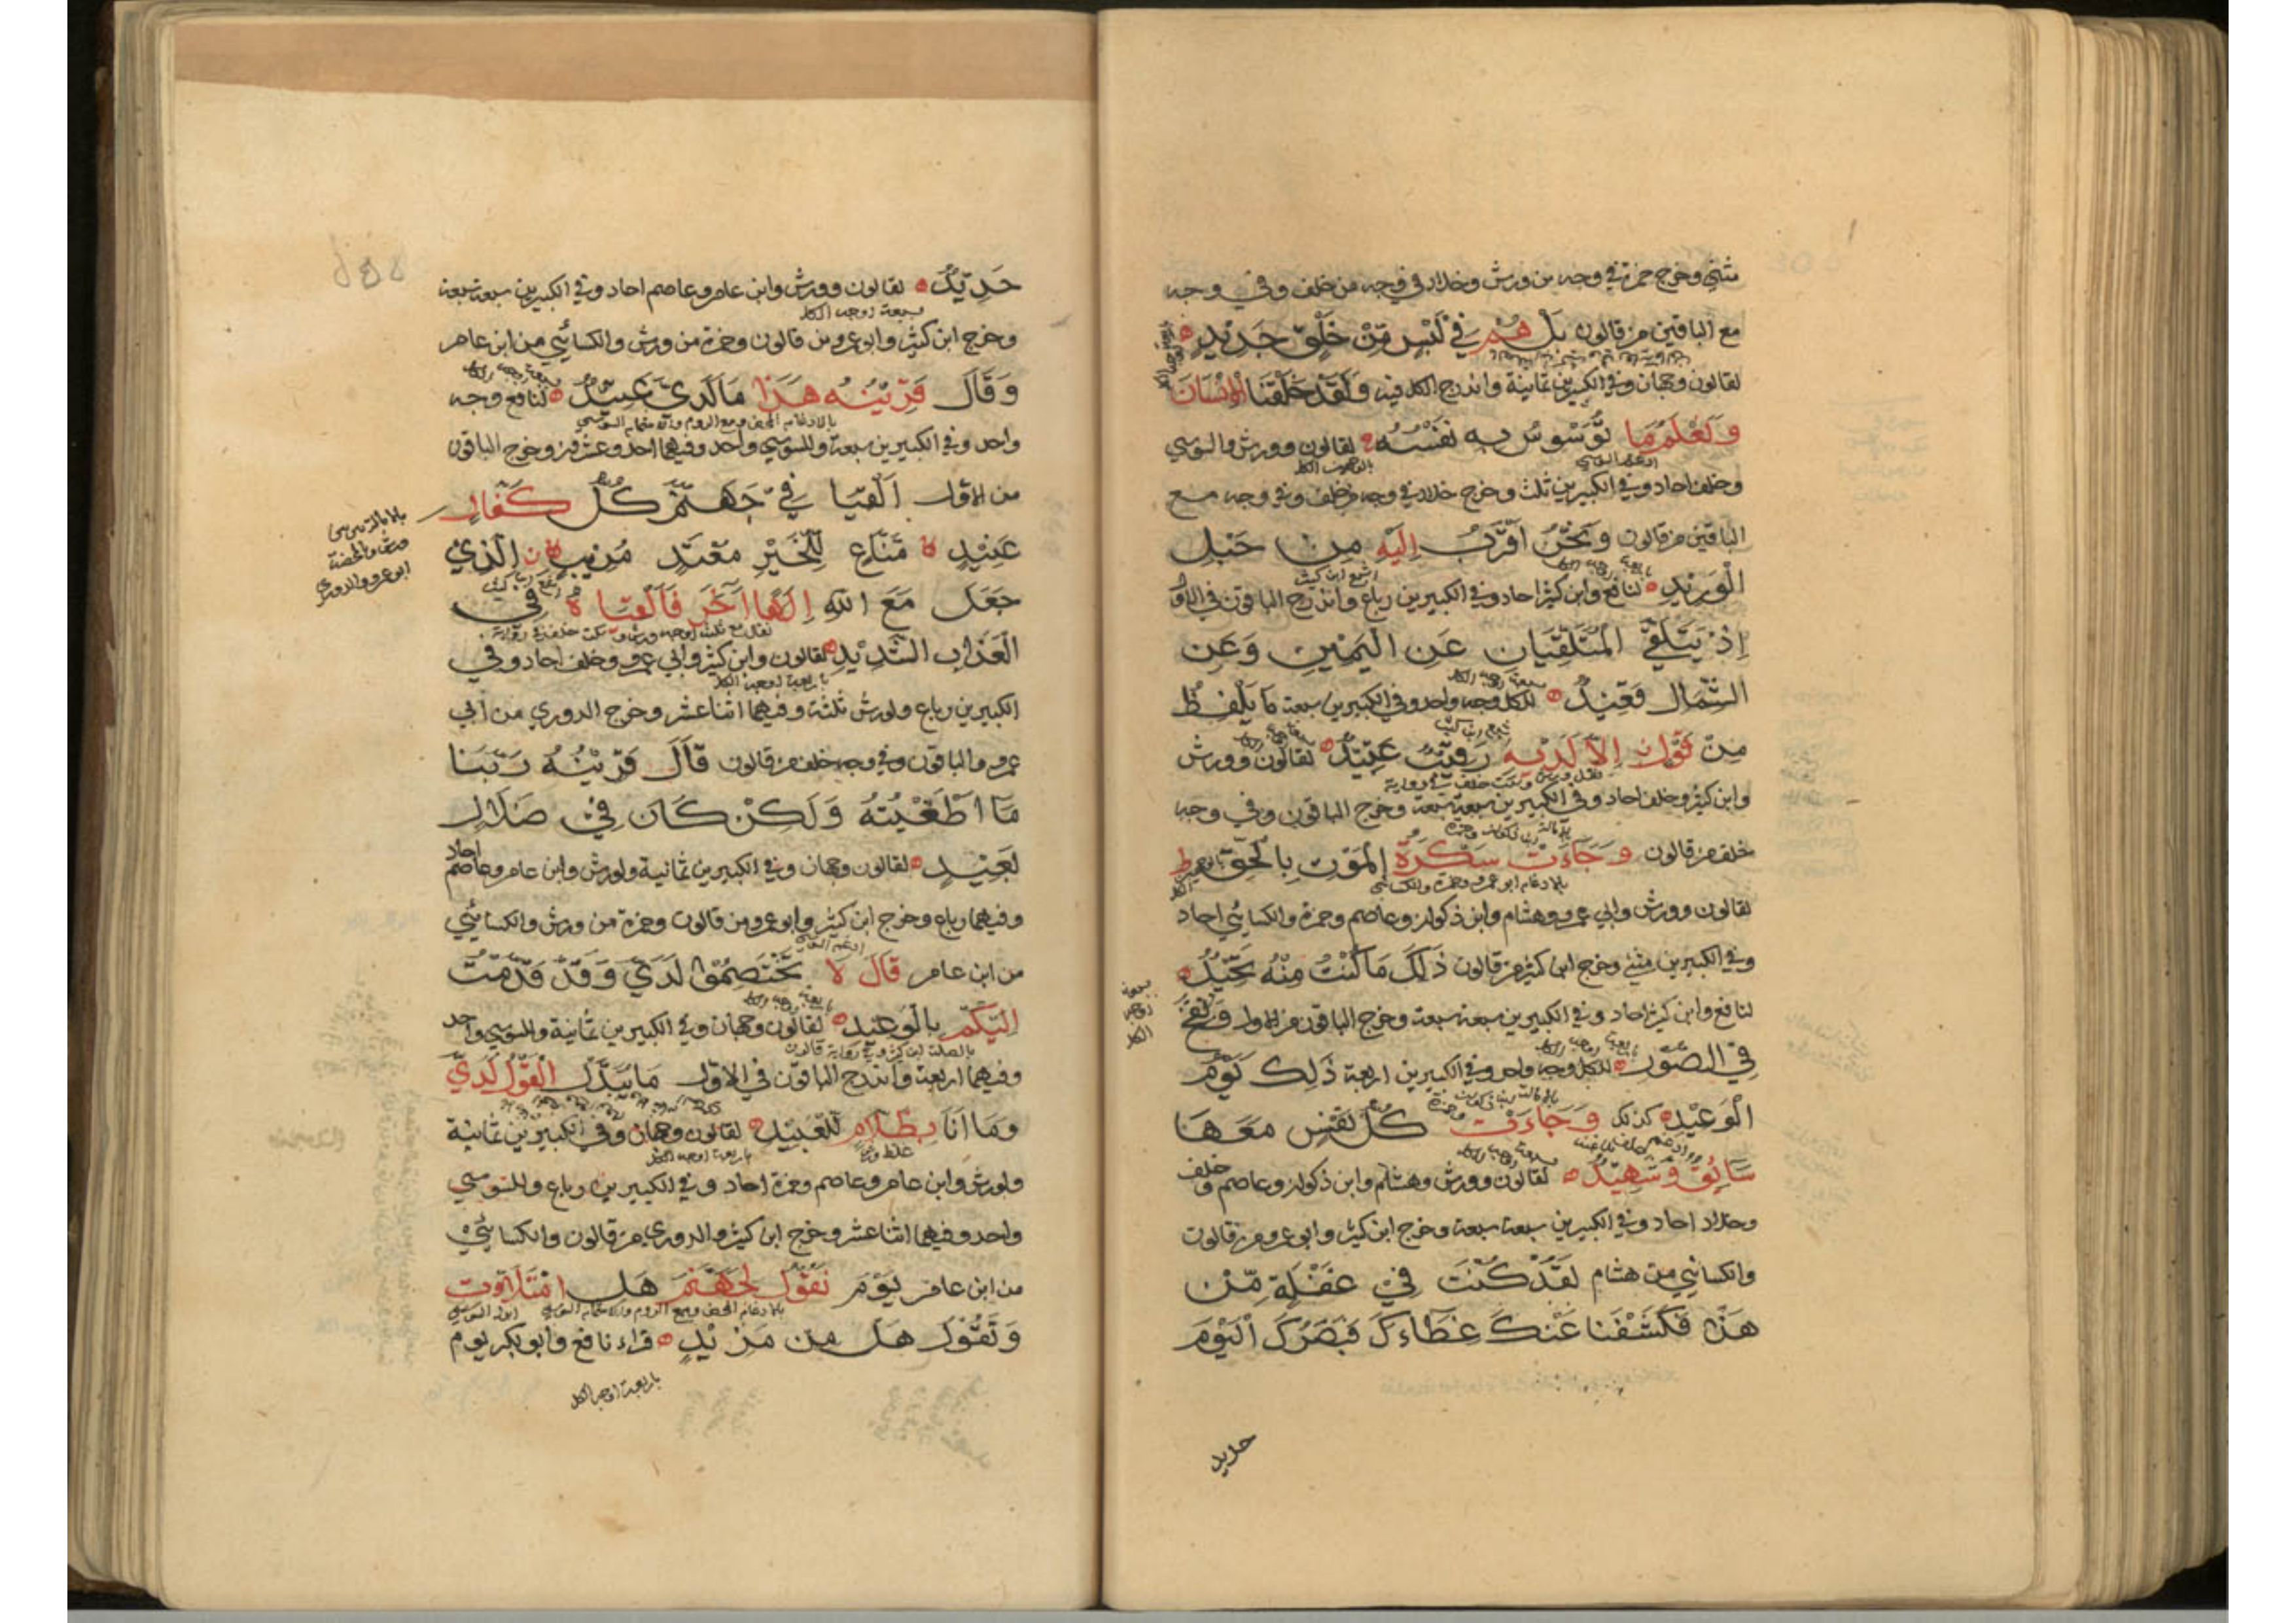 مثنى وخرج حمزة في وجه من ورش وخلاد في وجه من خلف وفي وجه
مع الباقين من قالون بَلْ هُمْ فِي لَبْسٍ مِّنْ خَلْقٍ جَدِيدٍ
لقالون وجهان وفي الكبيرين ثمانية واندرج الكل فيه وَلَقَدْ خَلَقْنَا الْاِنْسَانَ
وَنَعْلَمُ مَا تُوَسْوِسُ بِهِ نَفْسُهُ لقالون وورش والسوسي
وخلف احاد وفي الكبيرين ثلث وخرج خلاد في وجه من خلف وفي وجه مع
الباقين من قالون وَنَحْنُ اَقْرَبُ اِلَيْهِ مِنْ حَبْلِ
الْوَرِيدِ لنافع وابن كثير احاد وفي الكبيرين رباع واندرج الباقون في الاول
اِذْ يَتَلَقَّى الْمُتَلَقِّيَانِ عَنِ الْيَمِينِ وَعَنِ
الشِّمَالِ قَعِيدٌ للكل وجه واحد وفي الكبيرين سبعة مَا يَلْفِظُ
مِنْ قَوْلٍ اِلَّا لَدَيْهِ رَقِيبٌ عَتِيدٌ لقالون وورش
وابن كثير وخلف احاد وفي الكبيرين سبعة سبعة وخرج الباقون وفي وجه
خلف من قالون وَجَاءَتْ سَكْرَةُ الْمَوْتِ بِالْحَقِّ
لقالون وورش وابي عمرو وهشام وابن ذكوان وعاصم وحمزة والكسائي احاد
وفي الكبيرين مثنى وخرج ابن كثير من قالون ذَلِكَ مَا كُنْتَ مِنْهُ تَحِيدُ
لنافع وابن كثير احاد وفي الكبيرين سبعة سبعة وخرج الباقون من الاول وَنُفِخَ
فِي الصُّورِ للكل وجه واحد وفي الكبيرين اربعة ذَلِكَ يَوْمُ
الْوَعِيدِ كذلك وَجَاءَتْ كُلُّ نَفْسٍ مَعَهَا
سَائِقٌ وَشَهِيدٌ لقالون وورش وهشام وابن ذكوان وعاصم وخلف
وخلاد احاد وفي الكبيرين سبعة سبعة وخرج ابن كثير وابو عمرو من قالون
والكسائي من هشام لَقَدْ كُنْتَ فِي غَفْلَةٍ مِّنْ
هَذَا فَكَشَفْنَا عَنْكَ غِطَاءَكَ فَبَصَرُكَ الْيَوْمَ
حديد
حَدِيدٌ لقالون وورش وابن عامر وعاصم احاد وفي الكبيرين سبعة سبعة
سبعة اوجه الكل
وخرج ابن كثير وابو عمرو من قالون وحمزة من ورش والكسائي من ابن عامر
وَقَالَ قَرِينُهُ هَذَا مَا لَدَيَّ عَتِيدٌ لنافع وجه
واحد وفي الكبيرين سبعة وللسوسي واحد وفيهما احد وعشرون وخرج الباقون
من الاول اَلْقِيَا فِي جَهَنَّمَ كُلَّ كَفَّارٍ
عَنِيدٍ مَنَّاعٍ لِلْخَيْرِ مُعْتَدٍ مُرِيبٍ الَّذِي
جَعَلَ مَعَ اللهِ اِلَهًا آخَرَ فَاَلْقِيَاهُ فِي
الْعَذَابِ الشَّدِيدِ لقالون وابن كثير وابي عمرو وخلف احاد وفي
باربعة اوجه الكل
الكبيرين رباع ولورش ثلثة وفيهما اثنا عشر وخرج الدوري من ابي
عمرو والباقون وفي وجه خلف من قالون قَالَ قَرِينُهُ رَبَّنَا
مَا اَطْغَيْتُهُ وَلَكِنْ كَانَ فِي ضَلَالٍ
بَعِيدٍ لقالون وجهان وفي الكبيرين ثمانية ولورش وابن عامر وعاصم احاد
وفيهما رباع وخرج ابن كثير وابو عمرو من قالون وحمزة من ورش والكسائي
من ابن عامر قَالَ لَا تَخْتَصِمُوا لَدَيَّ وَقَدْ قَدَّمْتُ
اِلَيْكُمْ بِالْوَعِيدِ لقالون وجهان وفي الكبيرين ثمانية وللسوسي واحد
وفيهما اربعة واندرج الباقون في الاول مَا يُبَدَّلُ الْقَوْلُ لَدَيَّ
وَمَا اَنَا بِظَلَّامٍ لِلْعَبِيدِ لقالون وجهان وفي الكبيرين ثمانية
باربعة اوجه الكل
ولورش وابن عامر وعاصم وحمزة احاد وفي الكبيرين رباع وللسوسي
واحد وفيهما اثنا عشر وخرج ابن كثير والدوري من قالون والكسائي
من ابن عامر يَوْمَ نَقُولُ لِجَهَنَّمَ هَلِ امْتَلَاْتِ
وَتَقُولُ هَلْ مِن مَزِيدٍ قراء نافع وابو بكر يوم
باربعة اوجه الكل